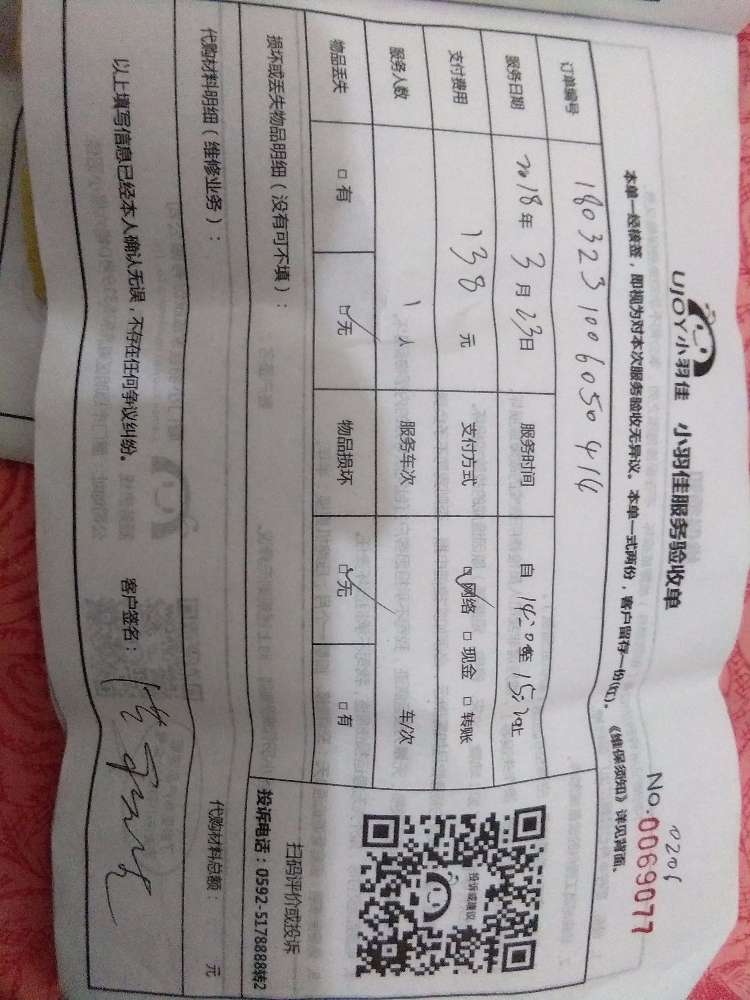 0206
UJOY小羽佳 小羽佳服务验收单 No.0069077
本单一经核签，即视为对本次服务验收无异议。本单一式两份，客户留存一份(红)。《维保须知》详见背面。
订单编号 1803231006050414
服务日期 2018年3月23日 服务时间 自14:20至15:20止
支付费用 138元 支付方式 网络 现金 转账
服务人数 1人 服务车次 车/次
物品丢失 有 无 物品损坏 无 有
投诉或建议
扫码评价或投诉
投诉电话：0592-5178888转2
损坏或丢失物品明细（没有可不填）：
代购材料明细（维修业务）： 代购材料总额： 元
以上填写信息已经本人确认无误，不存在任何争议纠纷。 客户签名：